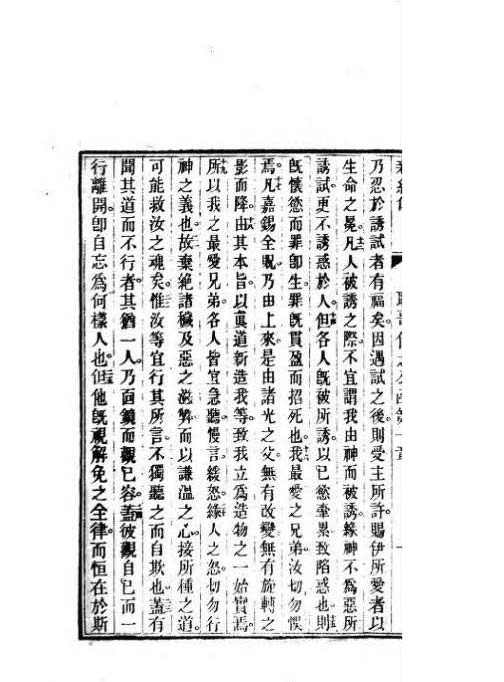 乃忍於誘試者有福矣。因遇試之後。則受主所許賜伊所愛者以
生命之冕。凡人被誘之際。不宜謂我由神而被誘。緣神不為惡所
誘試。更不誘惑於人。但各人既被所誘。以己慾牽累致陷惑也。則
既懷慾而罪即生。罪既貫盈而招死也。我最愛之兄弟。汝切勿悞
焉。凡嘉錫全貺。乃由上來。是由諸光之父。無有改變。無有旋轉之
影而降。由其本旨。以真道新造我等。致我立為造物之一始實焉。
所以我之最愛兄弟。各人皆宜急聽慢言緩怒。緣人之怒。切勿行
神之義也。故棄絕諸穢及惡之滋弊。而以謙溫之心。接所種之道。
可能救汝之魂矣。惟汝等宜行其所言。不獨聽之而自欺也。蓋有
聞其道而不行者。其猶一人。乃面鏡而觀己容。蓋彼觀自己而一
行離開。即自忘為何樣人也。但他既視解免之全律。而恒在於斯